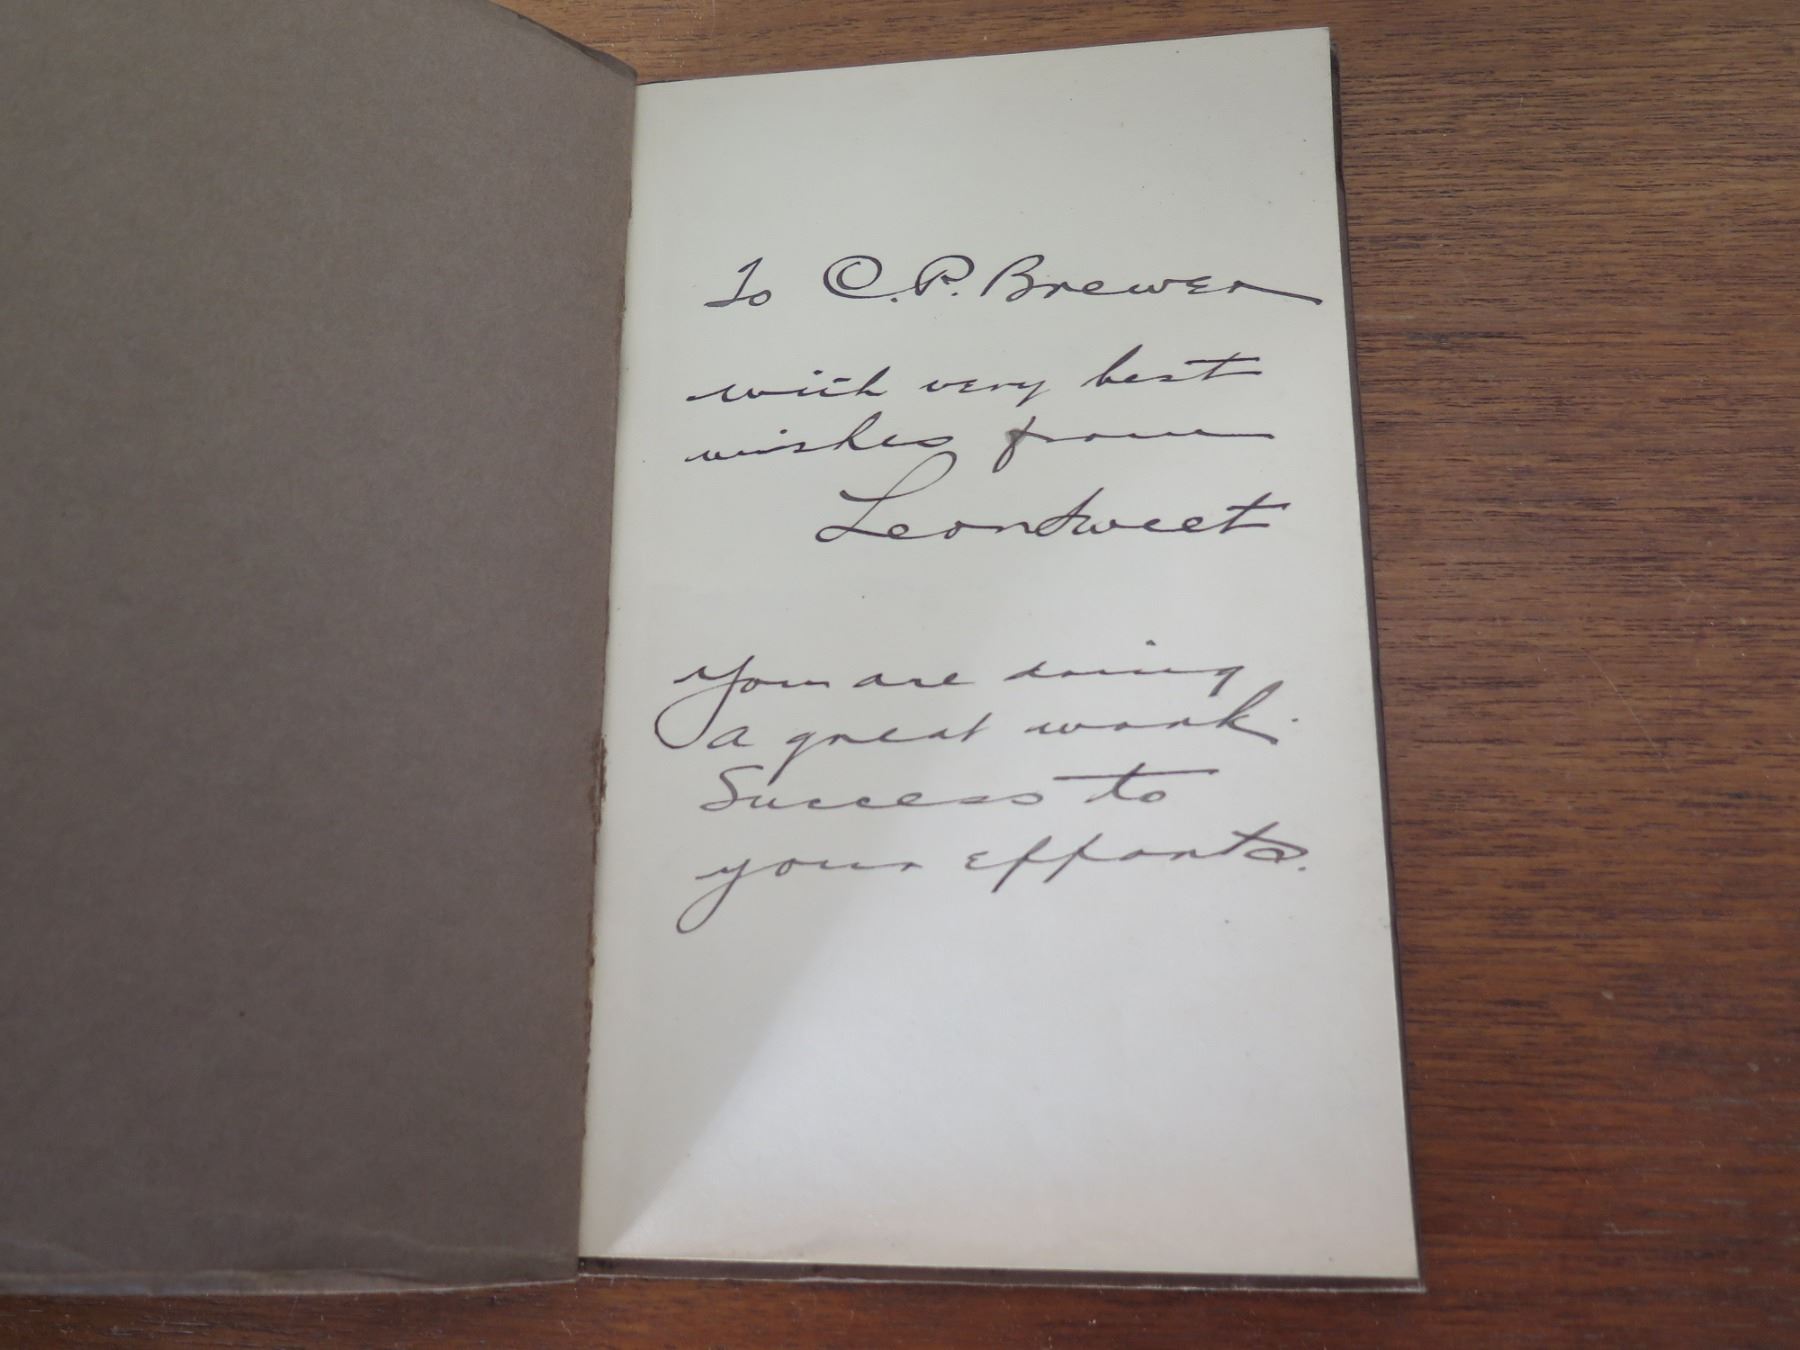 To C. P. Brewer
with very best
wishes from
Leon Sweet
You are doing
a great work.
Success to
your efforts.